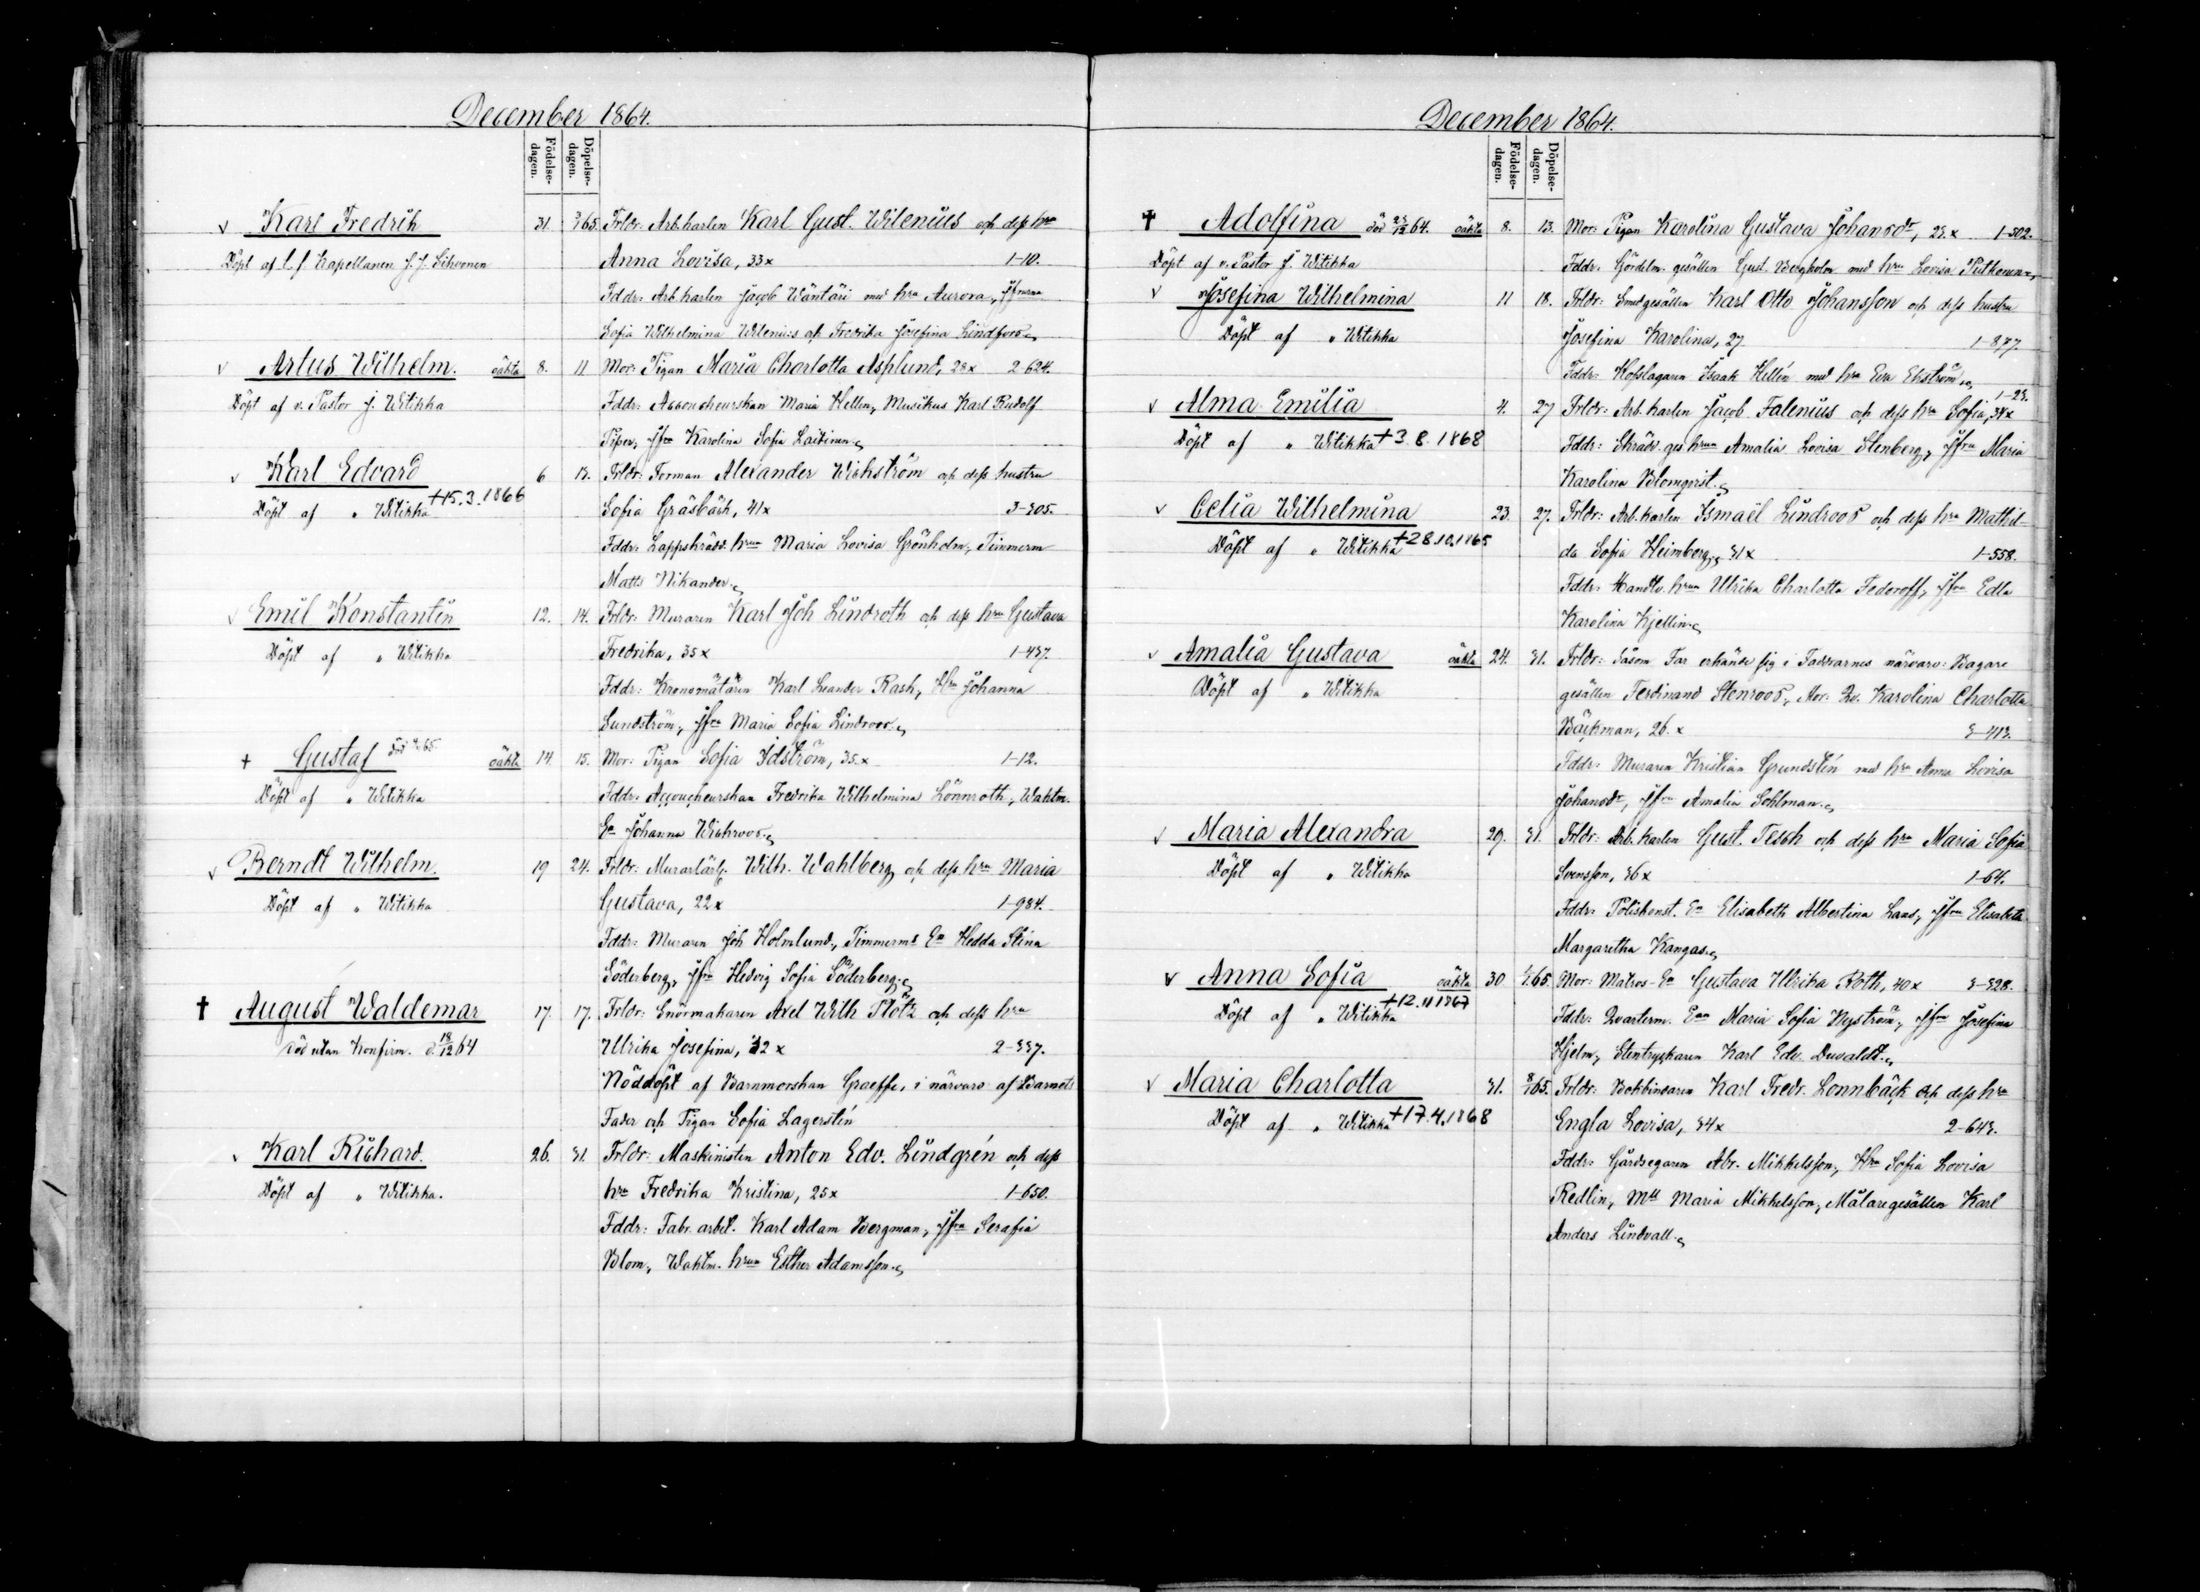 December 1864.
Födelse-dagen.
Döpelse-dagen.
Karl Fredrik 31 65. Frldr: Arb.karlen Karl Gust. Wilenius och dess hru
Döpt af Kapellanen J. J. Sihvonen Anna Lovisa, 33x 1-10.
Fddr: Arb.karlen Jacob Wäntäri med hru Aurora, Jfrurna
Sofia Wilhelmina Wilenius och Fredrika Josefina Lindfors
Artus Wilhelm. oäkta 8. 11 Mor: Pigan Maria Charlotta Asplund, 28x 2-624.
Döpt af v. Pastor J. Witikka Fddr: Accoucheurskan Maria Hellen, Musikus Karl Rudolf
Piper, Jfru Karolina Sofia Laitinen
Karl Edvard 6 13. Frldr: Forman Alexander Wichström och dess hustru
Döpt af " Witikka +15.3.1866 Sofia Gräsbäck, 41x 3-305.
Fddr: Lappskrädd. hrun Maria Lovisa Grönholm, Timmerm
Matts Nikander
Emil Konstantin 12. 14. Frldr: Muraren Karl Joh Lindroth och dess hru Gustava
Döpt af " Witikka Fredrika, 35x 1-437.
Fddr: Kronomätarn Karl Leander Rask, Hru Johanna
Sundström, Jfru Maria Sofia Lindroos
+ Gustaf död 65 oäkta 14 15. Mor: Pigan Sofia Idström, 35.x 1-12.
Döpt af " Witikka Fddr: Accoucheurskan Fredrika Wilhelmina Lönnroth, Waktm.
Ea Johanna Wichroos
Berndt Wilhelm. 19 24. Frldr: Murarlärl. Wilh. Wahlberg och dess hru Maria
Döpt af " Witikka Gustava, 22x 1-984.
Fddr: Muraren Joh Holmlund, Timmerms Ea Hedda Stina
Söderberg, Jfru Hedvig Sofia Söderberg
† August Waldemar 17. 17. Frldr: Snörmakaren Axel Wilh Plötz och dess hru
Död utan Konfirm. d. 18/12 64 Ulrika Josefina, 32 x 2-337.
Nöddöpt af Barnmorskan Graeffe, i närvaro af Barnets
Fader och Pigan Sofia Lagerstén
Karl Richard. 26. 31. Frldr: Maskinisten Anton Edv. Lindgrén och dess
Döpt af " Witikka. hru Fredrika Kristina, 25x 1-650.
Fddr: Fabr. arbet. Karl Adam Bergman, Jfru Serafia
Blom, Waktm. hrun Esther Adamsson
December 1864.
Födelse-dagen.
Döpelse-dagen.
† Adolfina död 64. oäkta 8. 13. Mor: Pigan Karolina Gustava Johansdr, 23.x 1-502.
Döpt af v. Pastor J. Witikka Fddr: Gördelm. gesällen Gust. Bergholm med hru Lovisa
Josefina Wilhelmina 11 18. Frldr: Smedgesällen Karl Otto Johansson och dess hustru
Döpt af " Witikka Josefina Karolina, 27 1-877.
Fddr: Hofslagaren Isaak Hellén med hru Eva Ekström
Alma Emilia 4. 27 Frldr: Arb.karlen Jacob Falenius och dess hru Sofia, 34x 1-23.
Döpt af " Witikka +3.8.1868 Fddr: Skrädd. ges hrun Amalia Lovisa Stenberg, Jfru Maria
Karolina Blomqvist
Celia Wilhelmina 23. 27. Frldr: Arb.karlen Ismaël Lindroos och dess hru Mathil-
Döpt af " Witikka +28.10.1865 da Sofia Heimberg, 31x 1-558.
Fddr: Handls. hrun Ulrika Charlotta Federoff, Jfru Edla
Karolina Kjellin
Amalia Gustava oäkta 24. 31. Frldr: Såsom Far erkände sig i Faddrarnes närvaro: Bagare
Döpt af " Witikka gesällen Ferdinand Stenroos, Mor: Qv. Karolina Charlotta
Bäckman, 26.x 3-413.
Fddr: Muraren Kristian Grundstén med hru Anna Lovisa
Johansdr, Jfru Amalia Sohlman
Maria Alexandra 29. 31. Frldr: Arb.karlen Gust. Tesch och dess hru Maria Sofia
Döpt af " Witikka Svensson, 36x 1-64.
Fddr: Poliskonst. Ea Elisabeth Albertina Lund, Jfru Elisabeth
Margaretha Kangas
Anna Sofia oäkta 30 65. Mor: Matros-Ea Gustava Ulrika Roth, 40x 3-328.
Döpt af " Witikka +12.11.1867 Fddr: Qvarterm. Ean Maria Sofia Nyström, Jfru Josefina
Hjelm, Stentryckaren Karl Edv. Duvaldt
Maria Charlotta 31. 65. Frldr: Bokbindaren Karl Fredr. Lonnbäck och dess hru
Döpt af " Witikka +17.4.1868 Engla Lovisa, 34x 2-643.
Fddr: Gårdsegaren Abr. Mikkelsson, Hru Sofia Lovisa
Redlin, Mll Maria Mikkelsson, Målaregesällen Karl
Anders Lindvall